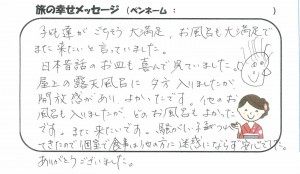 旅の幸せメッセージ (ペンネーム： )
子ども達が ごちそう 大満足、お風呂も大満足で
また来たいと言っていました。
日本昔話のお皿も喜んで見ていました。
屋上の露天風呂に夕方入りましたが
開放感があり よかったです。他のお
風呂も入りましたが どのお風呂もよかった
です。また来たいです。騒がしい子連れ
できたので個室で食事は他の方に迷惑にならず安心でした。
ありがとうございました。